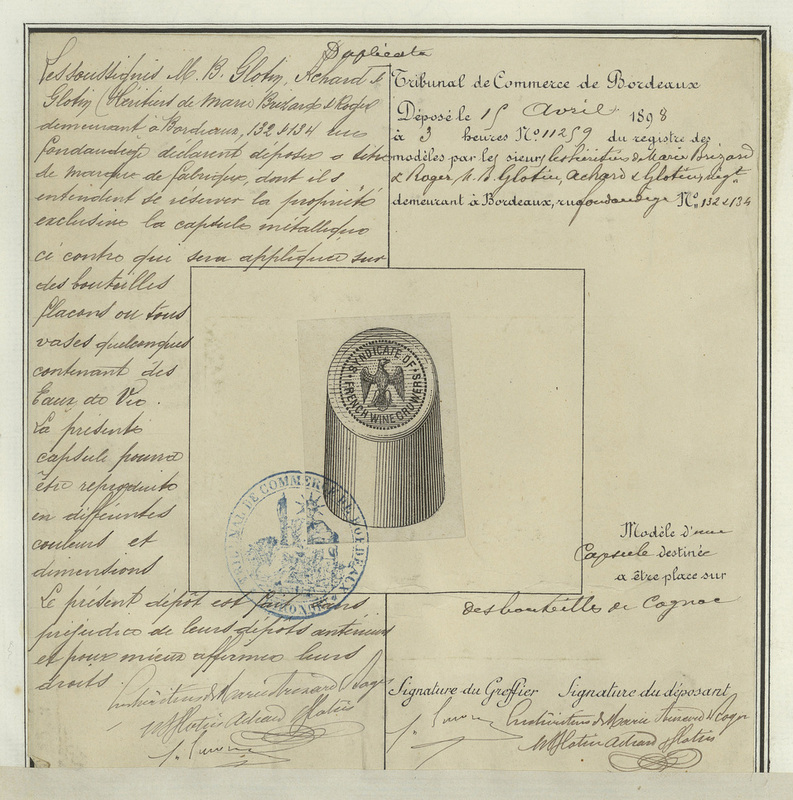 Duplicata
Les soussignés M. B. Glotin, Achard &
Glotin (Héritiers de Marie Brizard & Roger
demeurant à Bordeaux, 132 & 134 rue
Fondaudège déclarent déposer à titre
de marque de fabrique, dont ils
entendent se réserver la propriété
exclusive la capsule métallique
ci contre qui sera appliquée sur
des bouteilles
flacons ou tous
vases quelconques
contenant des
Eaux de Vie.
La présente
capsule pourra
être reproduite
en différentes
couleurs et
dimensions
Le présent dépôt est fait sans
préjudice de leurs dépôts antérieurs
et pour mieux affirmer leurs
droits.
les héritiers de Marie Brizard & Roger
M B Glotin Achard & Glotin
Tribunal de Commerce de Bordeaux
Déposé le 15 Avril 1898
à 3 heures Nº 11259 du registre des
modèles par les sieurs les héritiers de Marie Brizard
& Roger M. B. Glotin, Achard & Glotin, négts
demeurant à Bordeaux, rue fondaudège Nº 132 & 134
SYNDICATE OF
FRENCH WINEGROWERS
TRIBUNAL DE COMMERCE DE BORDEAUX
Modèle d'une
Capsule destinée
a être place sur
des bouteilles de Cognac
Signature du Greffier Signature du déposant
les héritiers de Marie Brizard & Roger
M B Glotin Achard & Glotin